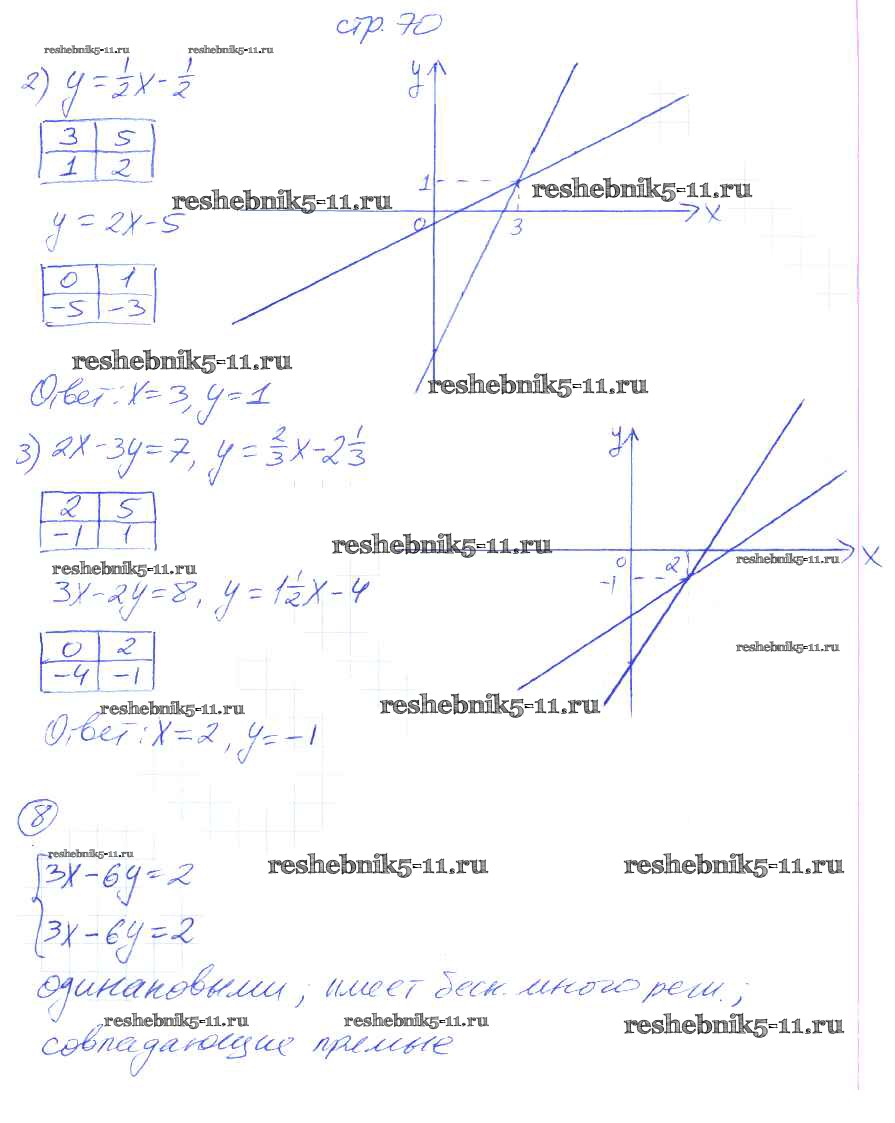 стр. 70
reshebnik5-11.ru reshebnik5-11.ru
2) y = 1/2 x - 1/2
3 5
1 2
y = 2x - 5
0 1
-5 -3
y
1
0 3 x
reshebnik5-11.ru reshebnik5-11.ru
reshebnik5-11.ru reshebnik5-11.ru
Ответ: x = 3, y = 1
3) 2x - 3y = 7, y = 2/3 x - 2 1/3
2 5
-1 1
reshebnik5-11.ru reshebnik5-11.ru
reshebnik5-11.ru
3x - 2y = 8, y = 1 1/2 x - 4
0 2
-4 -1
y
0 2 x
-1
reshebnik5-11.ru
reshebnik5-11.ru reshebnik5-11.ru
Ответ: x = 2, y = -1
8
reshebnik5-11.ru reshebnik5-11.ru reshebnik5-11.ru
3x - 6y = 2
3x - 6y = 2
одинаковыми; имеет беск. много реш.;
reshebnik5-11.ru reshebnik5-11.ru reshebnik5-11.ru
совпадающие прямые